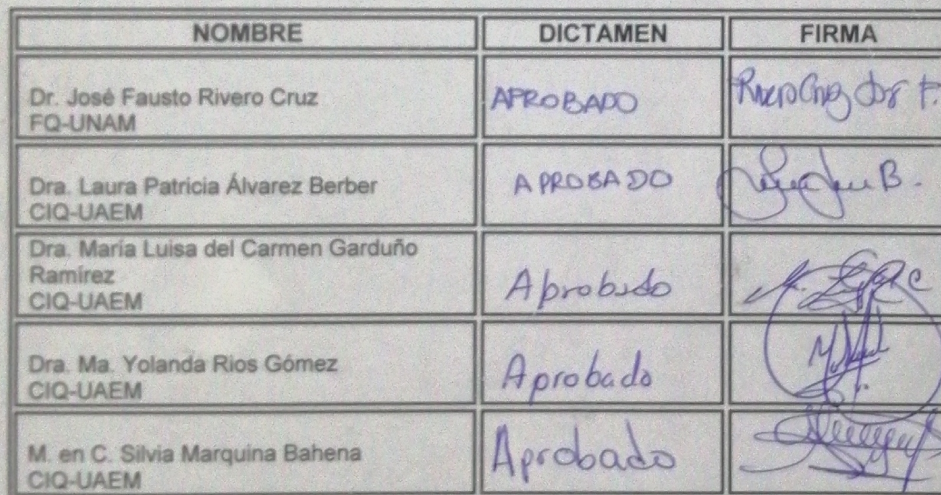 NOMBRE DICTAMEN FIRMA
Dr. José Fausto Rivero Cruz
FQ-UNAM
APROBADO
Rivero Cruz José F.
Dra. Laura Patricia Álvarez Berber
CIQ-UAEM
APROBADO
B.
Dra. María Luisa del Carmen Garduño
Ramírez
CIQ-UAEM
Aprobado
Dra. Ma. Yolanda Rios Gómez
CIQ-UAEM
Aprobado
M. en C. Silvia Marquina Bahena
CIQ-UAEM
Aprobado